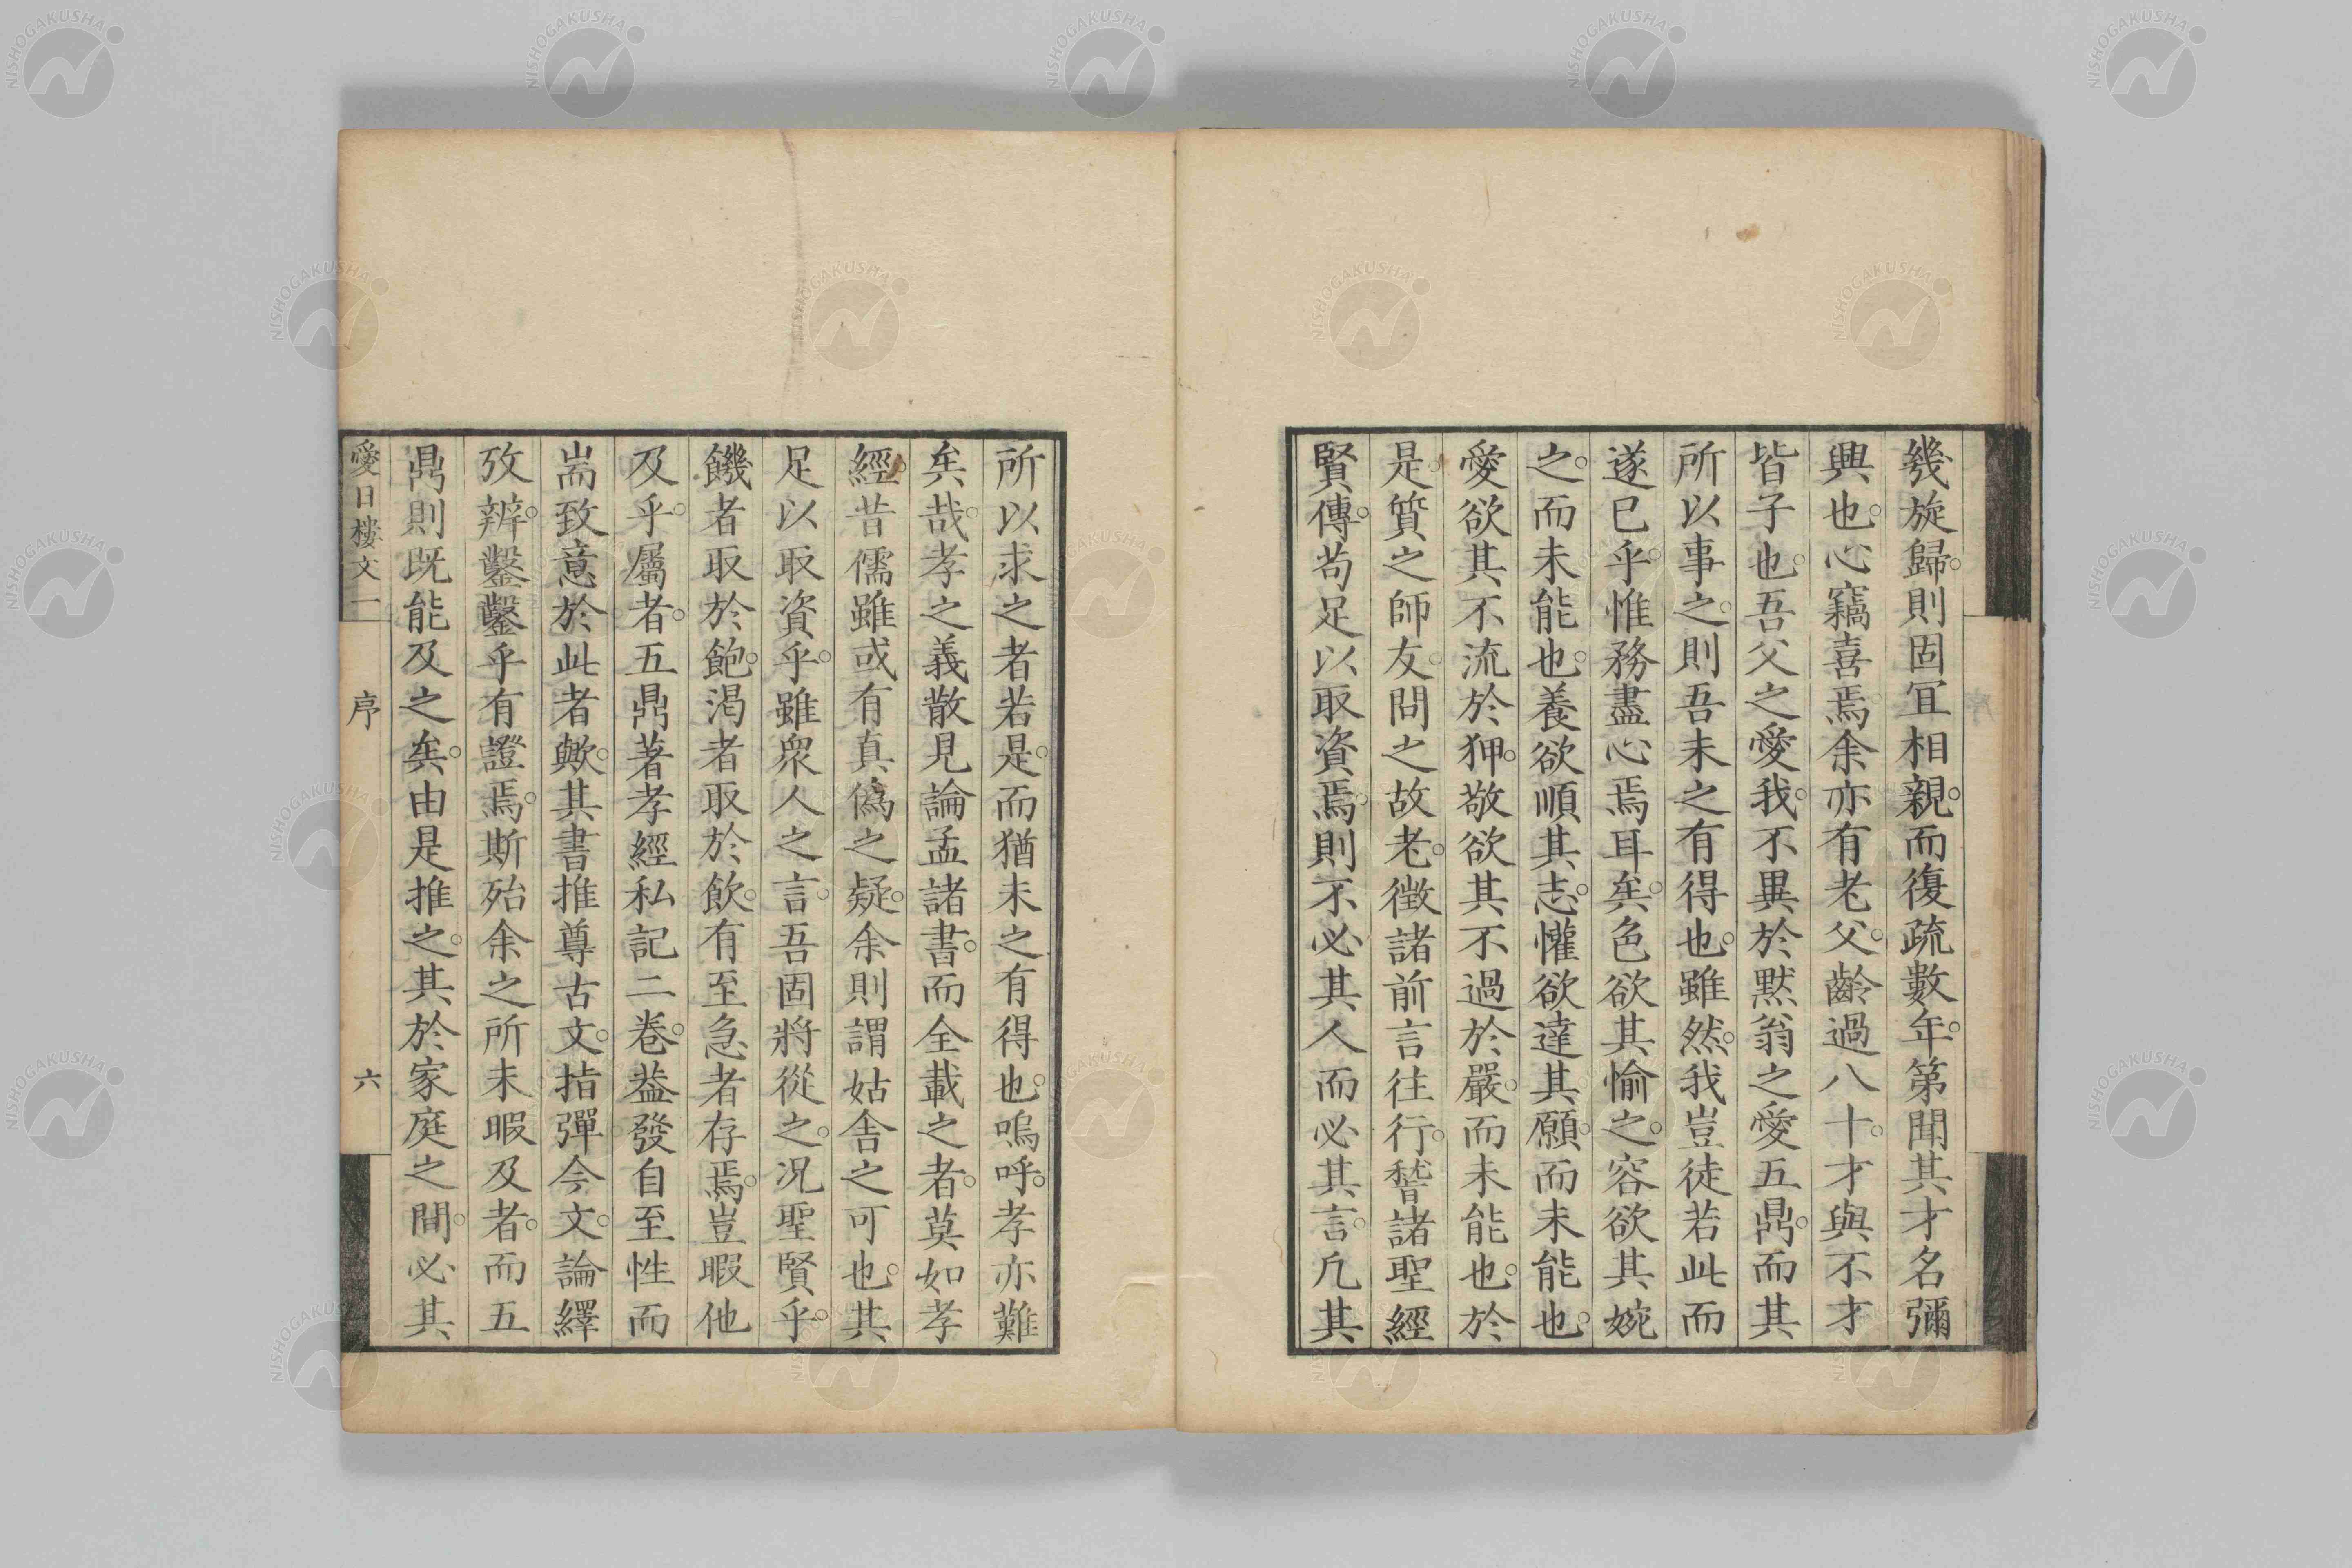 幾旋歸。則固冝相親。而復疏數年。第聞其才名彌
興也。心竊喜焉。余亦有老父。齡過八十。才與不才
皆子也。吾父之愛我。不異於默翁之愛五鼎。而其
所以事之。則吾未之有得也。雖然。我豈徒若此而
遂已乎。惟務盡心焉耳矣。色欲其愉之。容欲其婉
之。而未能也。養欲順其志。懽欲達其願。而未能也。
愛欲其不流於狎。敬欲其不過於嚴。而未能也。於
是。質之師友。問之故老。徵諸前言往行。稽諸聖經
賢傳。苟足以取資焉。則不必其人而必其言。凡其
所以求之者若是。而猶未之有得也。嗚呼。孝亦難
矣哉。孝之義散見論孟諸書。而全載之者。莫如孝
經。昔儒雖或有真偽之疑。余則謂姑舍之可也。其
足以取資乎。雖衆人之言。吾固將從之。况聖賢乎。
饑者取於飽。渴者取於飲。有至急者存焉。豈暇他
及乎。屬者。五鼎著孝經私記二卷。葢發自至性而
耑致意於此者歟。其書推尊古文。指彈今文。論繹
攷辨。鑿鑿乎有證焉。斯殆余之所未暇及者。而五
鼎則既能及之矣。由是推之。其於家庭之間。必其
愛日樓文一 序 六
NISHOGAKUSHA